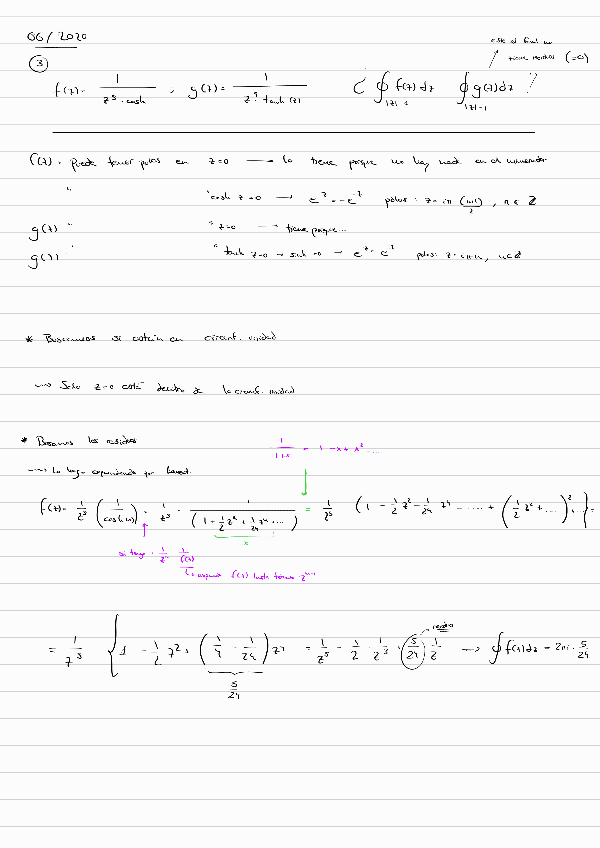 06/2020
este al final no
tiene residuo (=0)
3
f(z) = 1/(z⁵·cosh) , g(z) = 1/(z⁵ tanh(z)) ¿ ∮|z|=1 f(z)dz ∮|z|=1 g(z)dz ?
f(z) · Puede tener polos en z=0 → lo tiene porque no hay nada en el numerador
" " cosh z=0 →
g(z) " " z=0 → tiene porque...
g(z) " " tanh z=0 → sinh=0 →
* Buscamos si están en circunf. unidad
→ Solo z=0 está dentro de la circunf. unidad
* Buscamos los residuos
1/(1+x) = 1-x+x²...
→ Lo hago expandiendo por Laurent.
f(z) = 1/z⁵ (1/cosh(z)) = 1/z⁵ · 1/(1+1/2 z²+1/24 z⁴...) = 1/z⁵ (1 - 1/2 z² - 1/24 z⁴ ...... + (1/2 z²+...)²...} =
x
si tengo · 1/zⁿ 1/f(z)
f(z) hasta término zⁿ⁻¹
residuo
= 1/z⁵ {1 - 1/2 z² + (1/4 - 1/24) z⁴ = 1/z⁵ - 1/2 · 1/z³ + 5/24 · 1/z → ∮f(z)dz = 2πi · 5/24
5/24